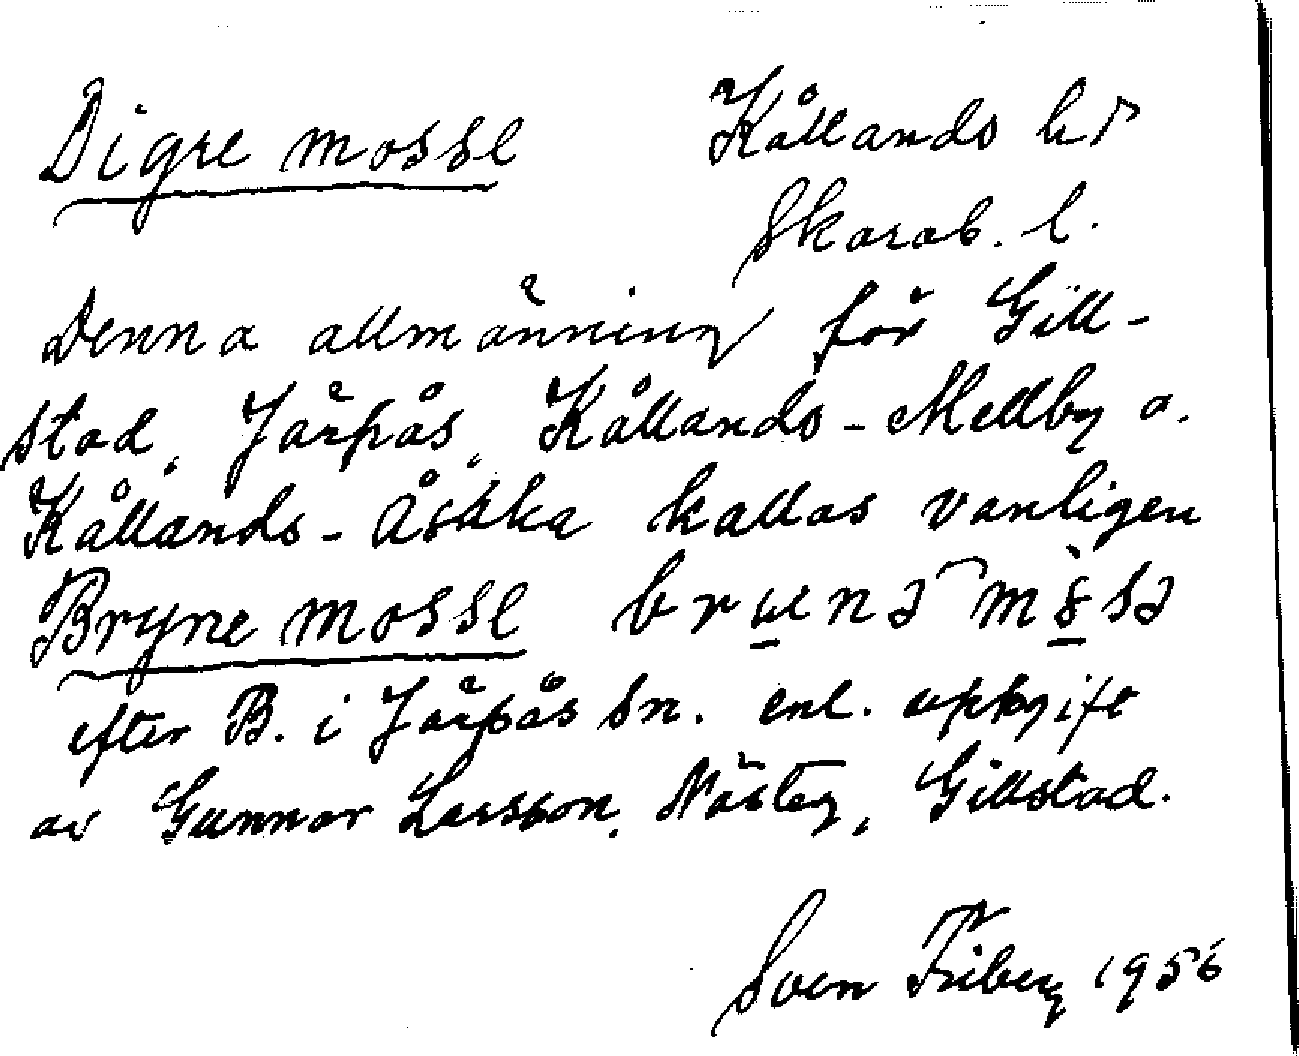 Digre mosse Kållands hd
Skarab. l.
Denna allmänning för Gill-
stad, Järpås, Kållands-Mellby o.
Kållands-Åsaka kallas vanligen
Bryne mosse
efter B. i Järpås sn. enl. uppgift
av Gunnar Larsson, Gillstad.
Sven Friberg 1956